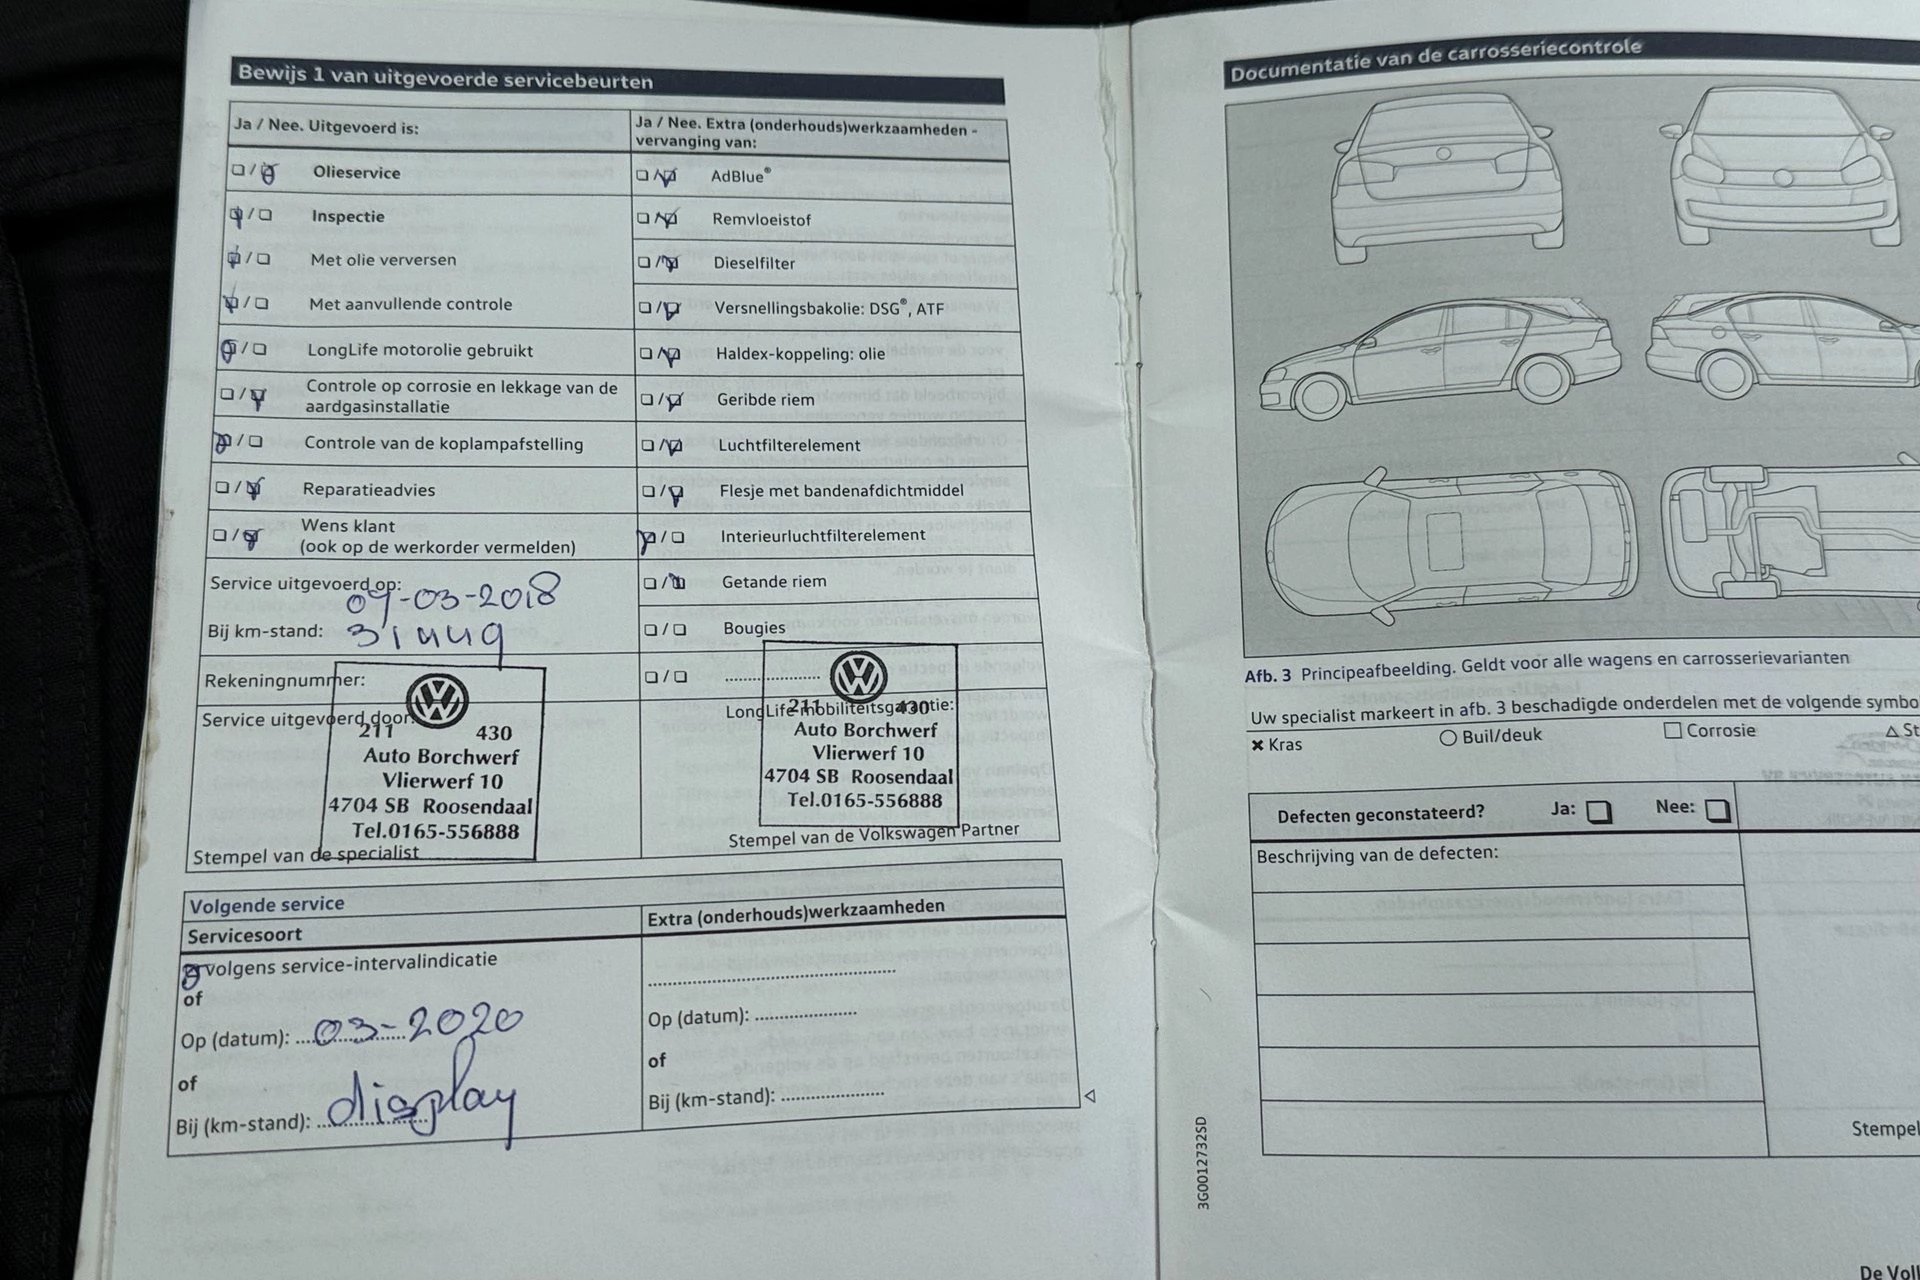 Bewijs 1 van uitgevoerde servicebeurten
Ja / Nee. Uitgevoerd is:
Olieservice
Inspectie
Met olie verversen
Met aanvullende controle
LongLife motorolie gebruikt
Controle op corrosie en lekkage van de
aardgasinstallatie
Controle van de koplampafstelling
Reparatieadvies
Wens klant
(ook op de werkorder vermelden)
Service uitgevoerd op: 09-03-2018
Bij km-stand: 31449
Rekeningnummer:
Service uitgevoerd door:
211 430
Auto Borchwerf
Vlierwerf 10
4704 SB Roosendaal
Tel.0165-556888
Stempel van de specialist
Ja / Nee. Extra (onderhouds)werkzaamheden -
vervanging van:
AdBlue®
Remvloeistof
Dieselfilter
Versnellingsbakolie: DSG®, ATF
Haldex-koppeling: olie
Geribde riem
Luchtfilterelement
Flesje met bandenafdichtmiddel
Interieurluchtfilterelement
Getande riem
Bougies
LongLife-mobiliteitsgarantie:
211 430
Auto Borchwerf
Vlierwerf 10
4704 SB Roosendaal
Tel.0165-556888
Stempel van de Volkswagen Partner
Volgende service
Servicesoort
volgens service-intervalindicatie
of
Op (datum): 03-2020
of
Bij (km-stand): display
Extra (onderhouds)werkzaamheden
Op (datum):
of
Bij (km-stand):
Documentatie van de carrosseriecontrole
Afb. 3 Principeafbeelding. Geldt voor alle wagens en carrosserievarianten
Uw specialist markeert in afb. 3 beschadigde onderdelen met de volgende symbo
Kras Buil/deuk Corrosie St
Defecten geconstateerd? Ja: Nee:
Beschrijving van de defecten:
Stempel
3G0012732SD
De Voll